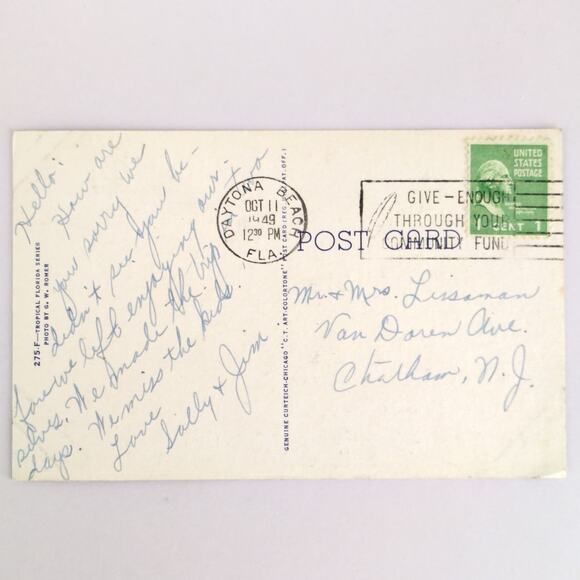 Hello!
How are
you sorry we
didn't see you be-
fore we left enjoying our-
selves. We made the trip
days. We miss the kids.
Love
Sally & Jim
275-F—TROPICAL FLORIDA SERIES
PHOTO BY G. W. ROMER
GENUINE CURTEICH-CHICAGO "C. T. ART-COLORTONE" POST CARD (REG. U. S. PAT. OFF.)
DAYTONA BEACH
OCT 11
1949
1230 PM
FLA.
GIVE-ENOUGH
THROUGH YOUR
COMMUNITY FUND
UNITED
STATES
POSTAGE
1 CENT 1
POST CARD
Mr. & Mrs. Lissaman
Van Doren Ave.
Chatham, N.J.